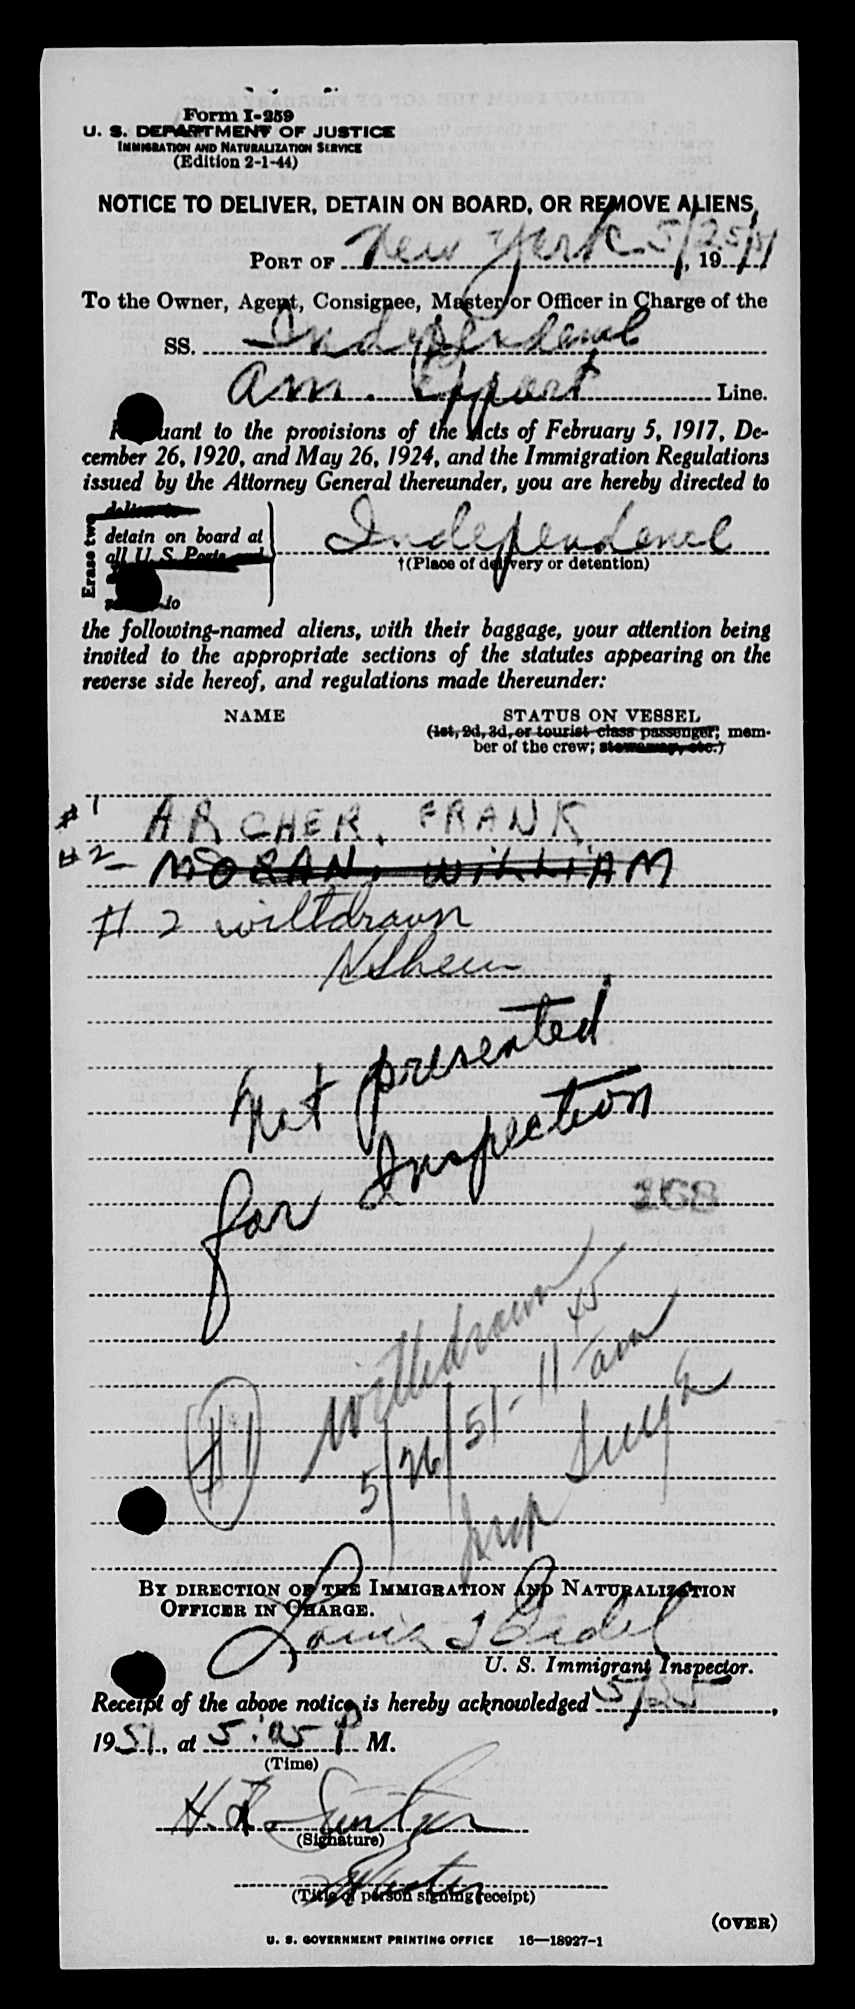 Form I-259
U. S. DEPARTMENT OF JUSTICE
IMMIGRATION AND NATURALIZATION SERVICE
(Edition 2-1-44)
NOTICE TO DELIVER, DETAIN ON BOARD, OR REMOVE ALIENS
PORT OF New York 5/25/51, 19
To the Owner, Agent, Consignee, Master or Officer in Charge of the
SS. Independence
Am. Export Line.
Pursuant to the provisions of the Acts of February 5, 1917, De-
cember 26, 1920, and May 26, 1924, and the Immigration Regulations
issued by the Attorney General thereunder, you are hereby directed to
Erase two
deliver to
detain on board at
all U. S. Ports and
Independence
†(Place of delivery or detention)
the following-named aliens, with their baggage, your attention being
invited to the appropriate sections of the statutes appearing on the
reverse side hereof, and regulations made thereunder:
NAME STATUS ON VESSEL
(1st, 2d, 3d, or tourist class passenger; mem-
ber of the crew; stowaway, etc.)
#1 ARCHER, FRANK
#2 - MORAN, WILLIAM
# 2 withdrawn
Not presented
for Inspection
268
#1 withdrawn
5/26/51 - 11 45 am
Insp
BY DIRECTION OF THE IMMIGRATION AND NATURALIZATION
OFFICER IN CHARGE.
Louis
U. S. Immigrant Inspector.
Receipt of the above notice is hereby acknowledged 5/25,
1951, at 5:05 P M.
(Time)
H. R.
(Signature)
(Title of person signing receipt)
(OVER)
U. S. GOVERNMENT PRINTING OFFICE 16—18927-1